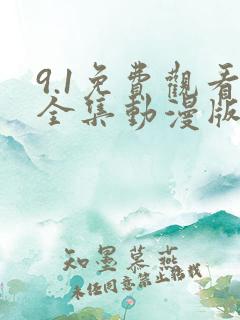 9.1免費觀看
全集動漫版
知墨慕燕
未经同意禁止转载